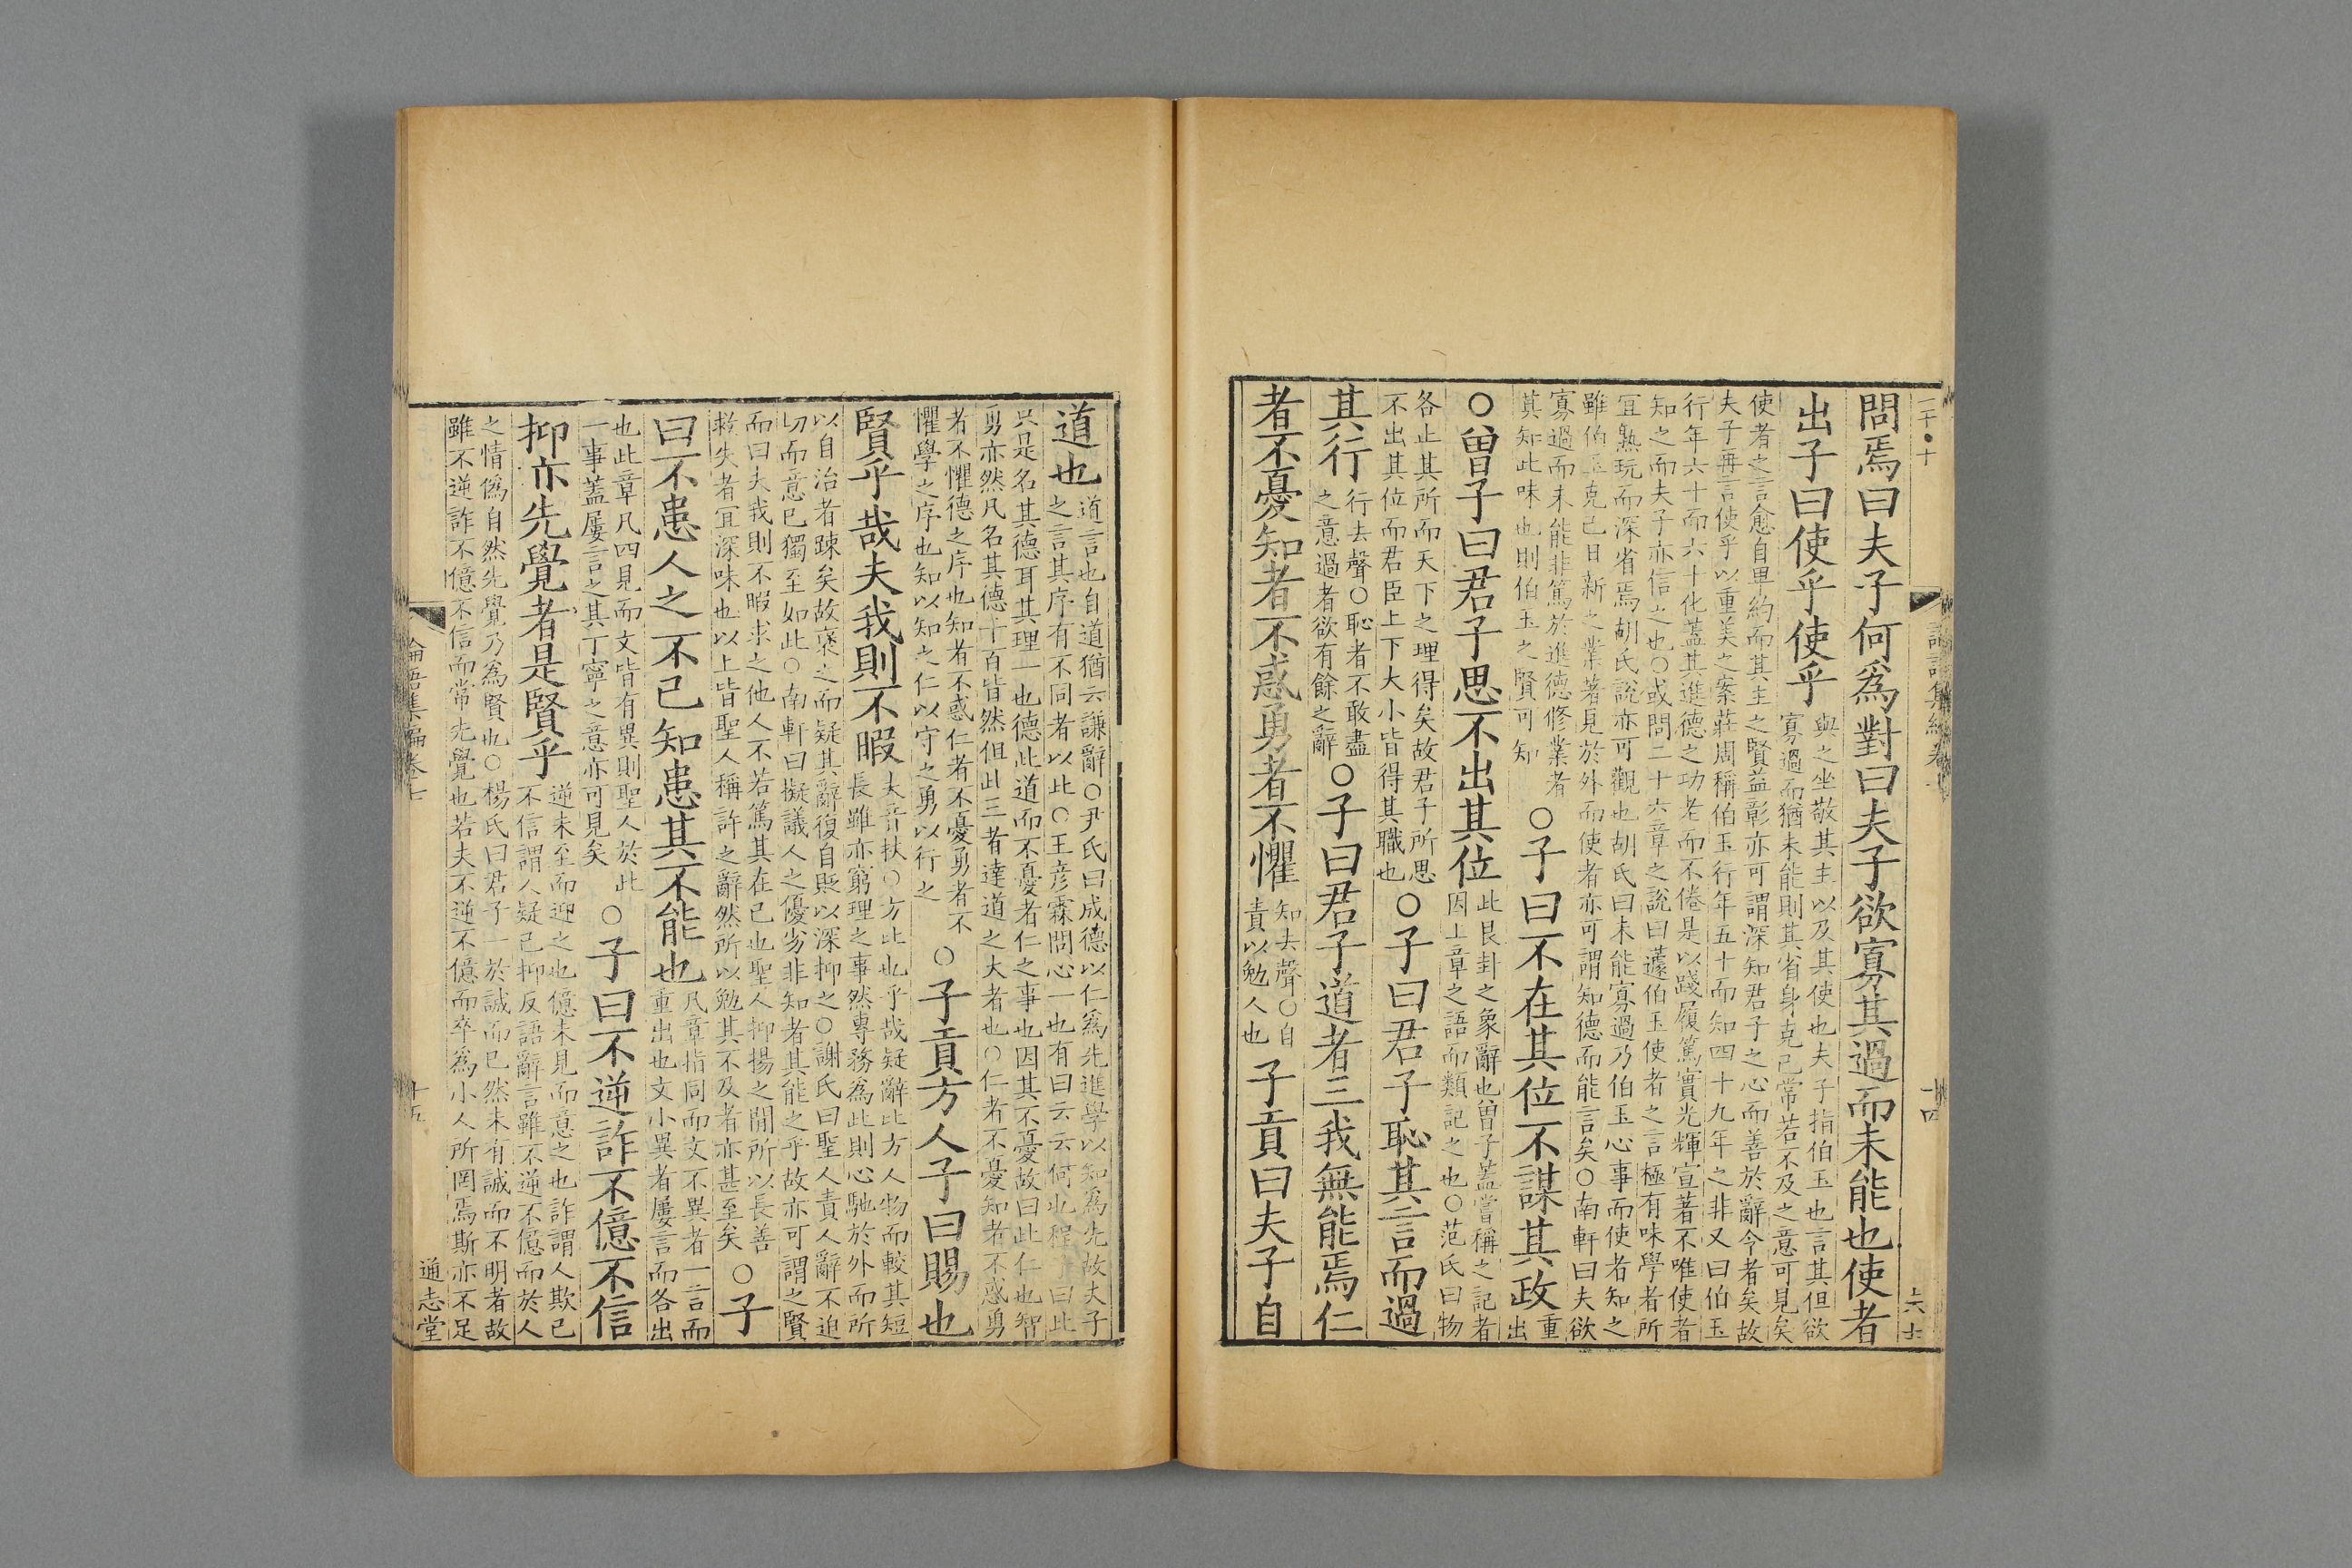 問焉曰夫子何爲對曰夫子欲寡其過而未能也使者
出子曰使乎使乎
與之坐敬其主以及其使也夫子指伯玉也言其但欲
寡過而猶未能則其省身克己常若不及之意可見矣
使者之言愈自卑約而其主之賢益彰亦可謂深知君子之心而善於辭令者矣故
夫子再言使乎以重美之案莊周稱伯玉行年五十而知四十九年之非又曰伯玉
行年六十而六十化蓋其進德之功老而不倦是以踐履篤實光輝宣著不唯使者
知之而夫子亦信之也○或問二十六章之說曰蘧伯玉使者之言極有味學者所
宜熟玩而深省焉胡氏說亦可觀也胡氏曰未能寡過乃伯玉心事而使者知之
雖伯玉克己日新之業著見於外而使者亦可謂知德而能言矣○南軒曰夫欲
寡過而未能非篤於進德修業者
其知此味也則伯玉之賢可知
○子曰不在其位不謀其政
重
出
○曾子曰君子思不出其位
此艮卦之象辭也曾子蓋嘗稱之記者
因上章之語而類記之也○范氏曰物
各止其所而天下之理得矣故君子所思
不出其位而君臣上下大小皆得其職也
○子曰君子恥其言而過
其行
行去聲○恥者不敢盡
之意過者欲有餘之辭
○子曰君子道者三我無能焉仁
者不憂知者不惑勇者不懼
知去聲○自
責以勉人也
子貢曰夫子自
十四
道也
道言也自道猶云謙辭○尹氏曰成德以仁爲先進學以知爲先故夫子
之言其序有不同者以此○王彥霖問心一也有曰云云何也程子曰此
只是名其德耳其理一也德此道而不憂者仁之事也因其不憂故曰此仁也智
勇亦然凡名其德千百皆然但此三者達道之大者也○仁者不憂知者不惑勇
者不懼德之序也知者不惑仁者不憂勇者不
懼學之序也知以知之仁以守之勇以行之
○子貢方人子曰賜也
賢乎哉夫我則不暇
夫音扶○方比也乎哉疑辭比方人物而較其短
長雖亦窮理之事然專務爲此則心馳於外而所
以自治者踈矣故褒之而疑其辭復自貶以深抑之○謝氏曰聖人責人辭不迫
切而意已獨至如此○南軒曰擬議人之優劣非知者其能之乎故亦可謂之賢
而曰夫我則不暇求之他人不若篤其在己也聖人抑揚之閒所以長善
救失者宜深味也以上皆聖人稱許之辭然所以勉其不及者亦甚至矣
○子
曰不患人之不己知患其不能也
凡章指同而文不異者一言而
重出也文小異者屢言而各出
也此章凡四見而文皆有異則聖人於此
一事蓋屢言之其丁寧之意亦可見矣
○子曰不逆詐不億不信
抑亦先覺者是賢乎
逆未至而迎之也億未見而意之也詐謂人欺己
不信謂人疑己抑反語辭言雖不逆不億而於人
之情僞自然先覺乃爲賢也○楊氏曰君子一於誠而已然未有誠而不明者故
雖不逆詐不億不信而常先覺也若夫不逆不億而卒爲小人所罔焉斯亦不足
論語集編卷七
十五
通志堂